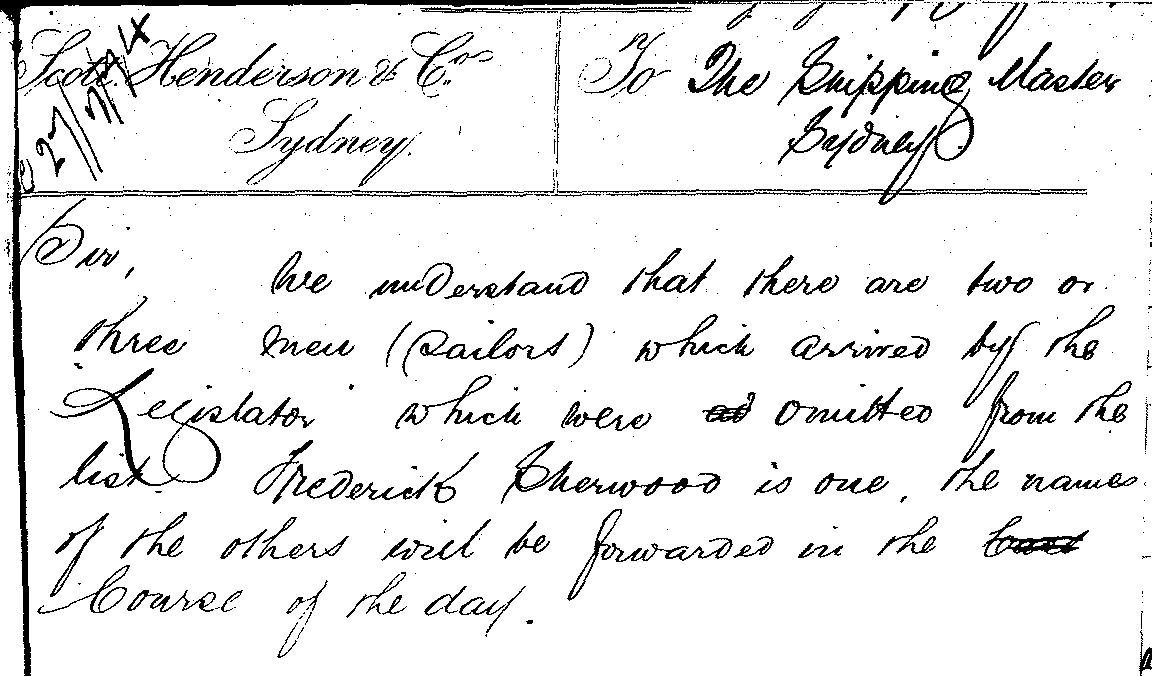 Scott Henderson & Co.
Sydney.
27/7/74
To The Shipping Master
Sydney.
Sir,
We understand that there are two or
three men (sailors) which arrived by the
Legislator which were omitted from the
list. Frederick Sherwood is one, the names
of the others will be forwarded in the
Course of the day.